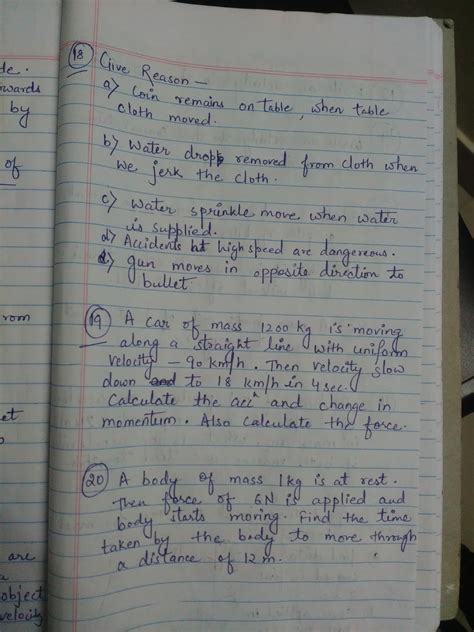 de.
owards
by
of
rom
et
are
a
object
velocity
18 Give Reason —
a) Coin remains on table, when table
cloth moved.
b) Water drops removed from cloth when
we jerk the cloth.
c) Water sprinkle move when water
is supplied.
d) Accidents at high speed are dangereous.
d) gun moves in opposite direction to
bullet
19 A car of mass 1200 kg is moving
along a straight line with uniform
velocity – 90 km/h. Then velocity slow
down and to 18 km/h in 4 sec.
Calculate the accn and change in
momentum. Also Calculate the force.
20 A body of mass 1kg is at rest.
Then force of 6N is applied and
body starts moving. Find the time
taken by the body to move through
a distance of 12 m.